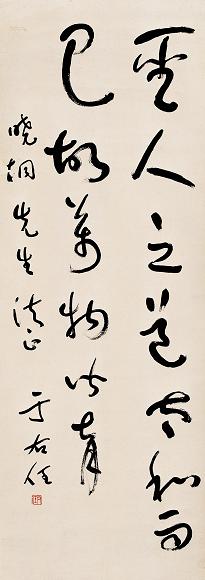 聖人之道和而
已故萬物育
曉先生法正
于右任